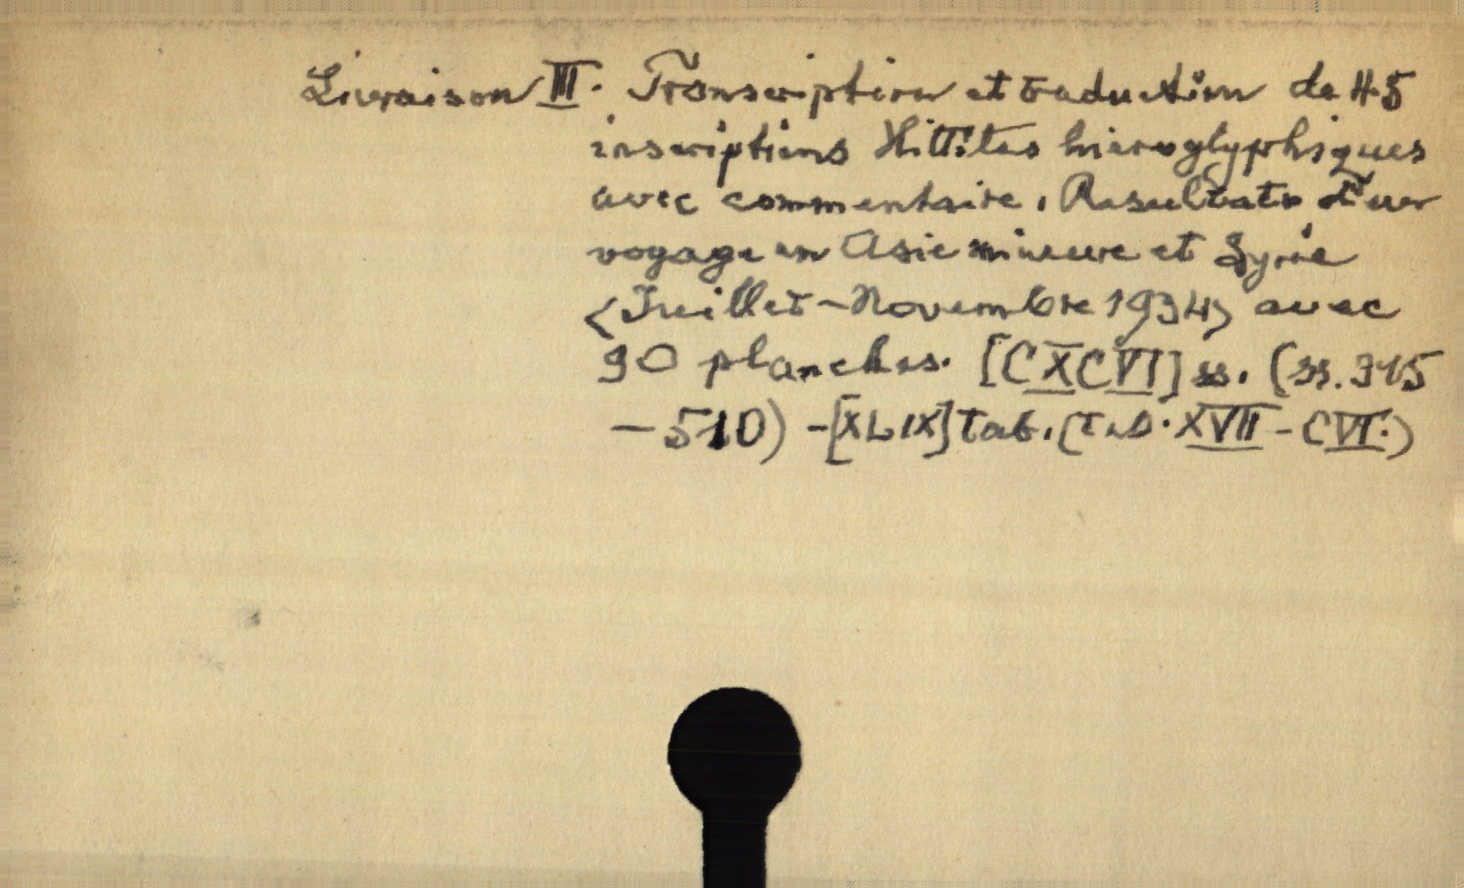 Livraison III. Transcription et traduction de 45
inscriptions Hittites hieroglyphiques
avec commentaire. Resultats d'un
voyage en Asie mineure et Syrie
<Juillet-Novembre 1934> avec
90 planches. [CXCVI] ss. (ss. 315
-510) -[XLIX] tab. (Tab. XVII - CVI.)